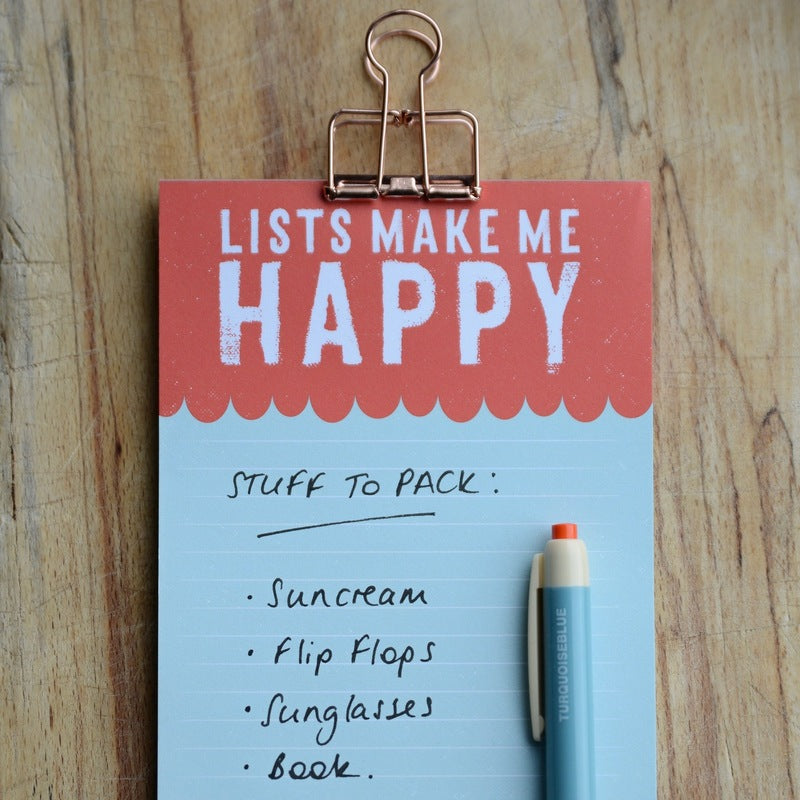 LISTS MAKE ME
HAPPY
STUFF TO PACK:
• Suncream
• Flip Flops
• Sunglasses
• Book.
TURQUOISEBLUE